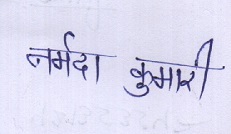 नर्मदा कुमारी